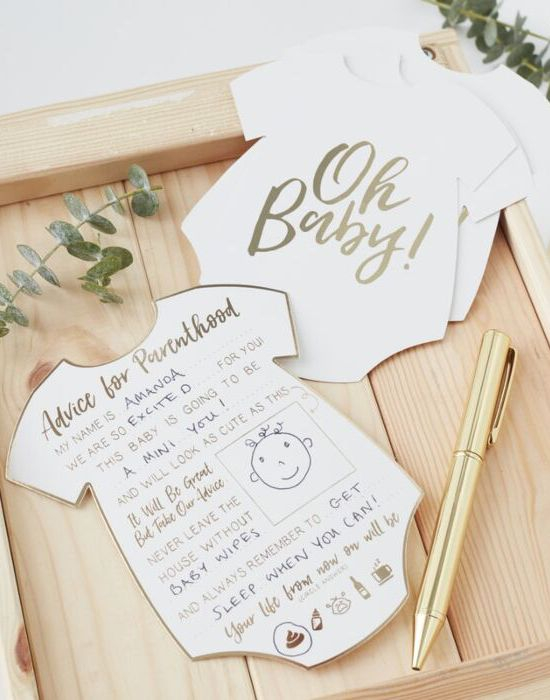 Oh
Baby!
Advice for Parenthood
MY NAME IS AMANDA
WE ARE SO EXCITED FOR YOU!
THIS BABY IS GOING TO BE
A MINI YOU!
AND WILL LOOK AS CUTE AS THIS
It Will Be Great
But Take Our Advice
NEVER LEAVE THE
HOUSE WITHOUT
BABY WIPES
AND ALWAYS REMEMBER TO GET
SLEEP WHEN YOU CAN!
Your life from now on will be
(CIRCLE ANSWER)